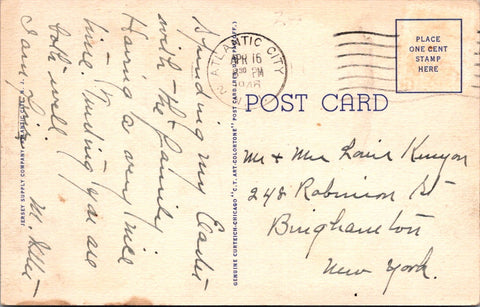 Spending my Easter
with the family.
Having a very nice
time. Trusting you are
both well.
I am,
M.
JERSEY SUPPLY CO., ATLANTIC
GENUINE CURTEICH-CHICAGO "C.T. ART-COLORTONE" POST CARD (REG. U.S. PAT. OFF.)
ATLANTIC CITY
APR 16
PM
POST CARD
PLACE
ONE CENT
STAMP
HERE
Mr + Mrs Louis Kenyon
248 Robinson St
Binghamton
New York.